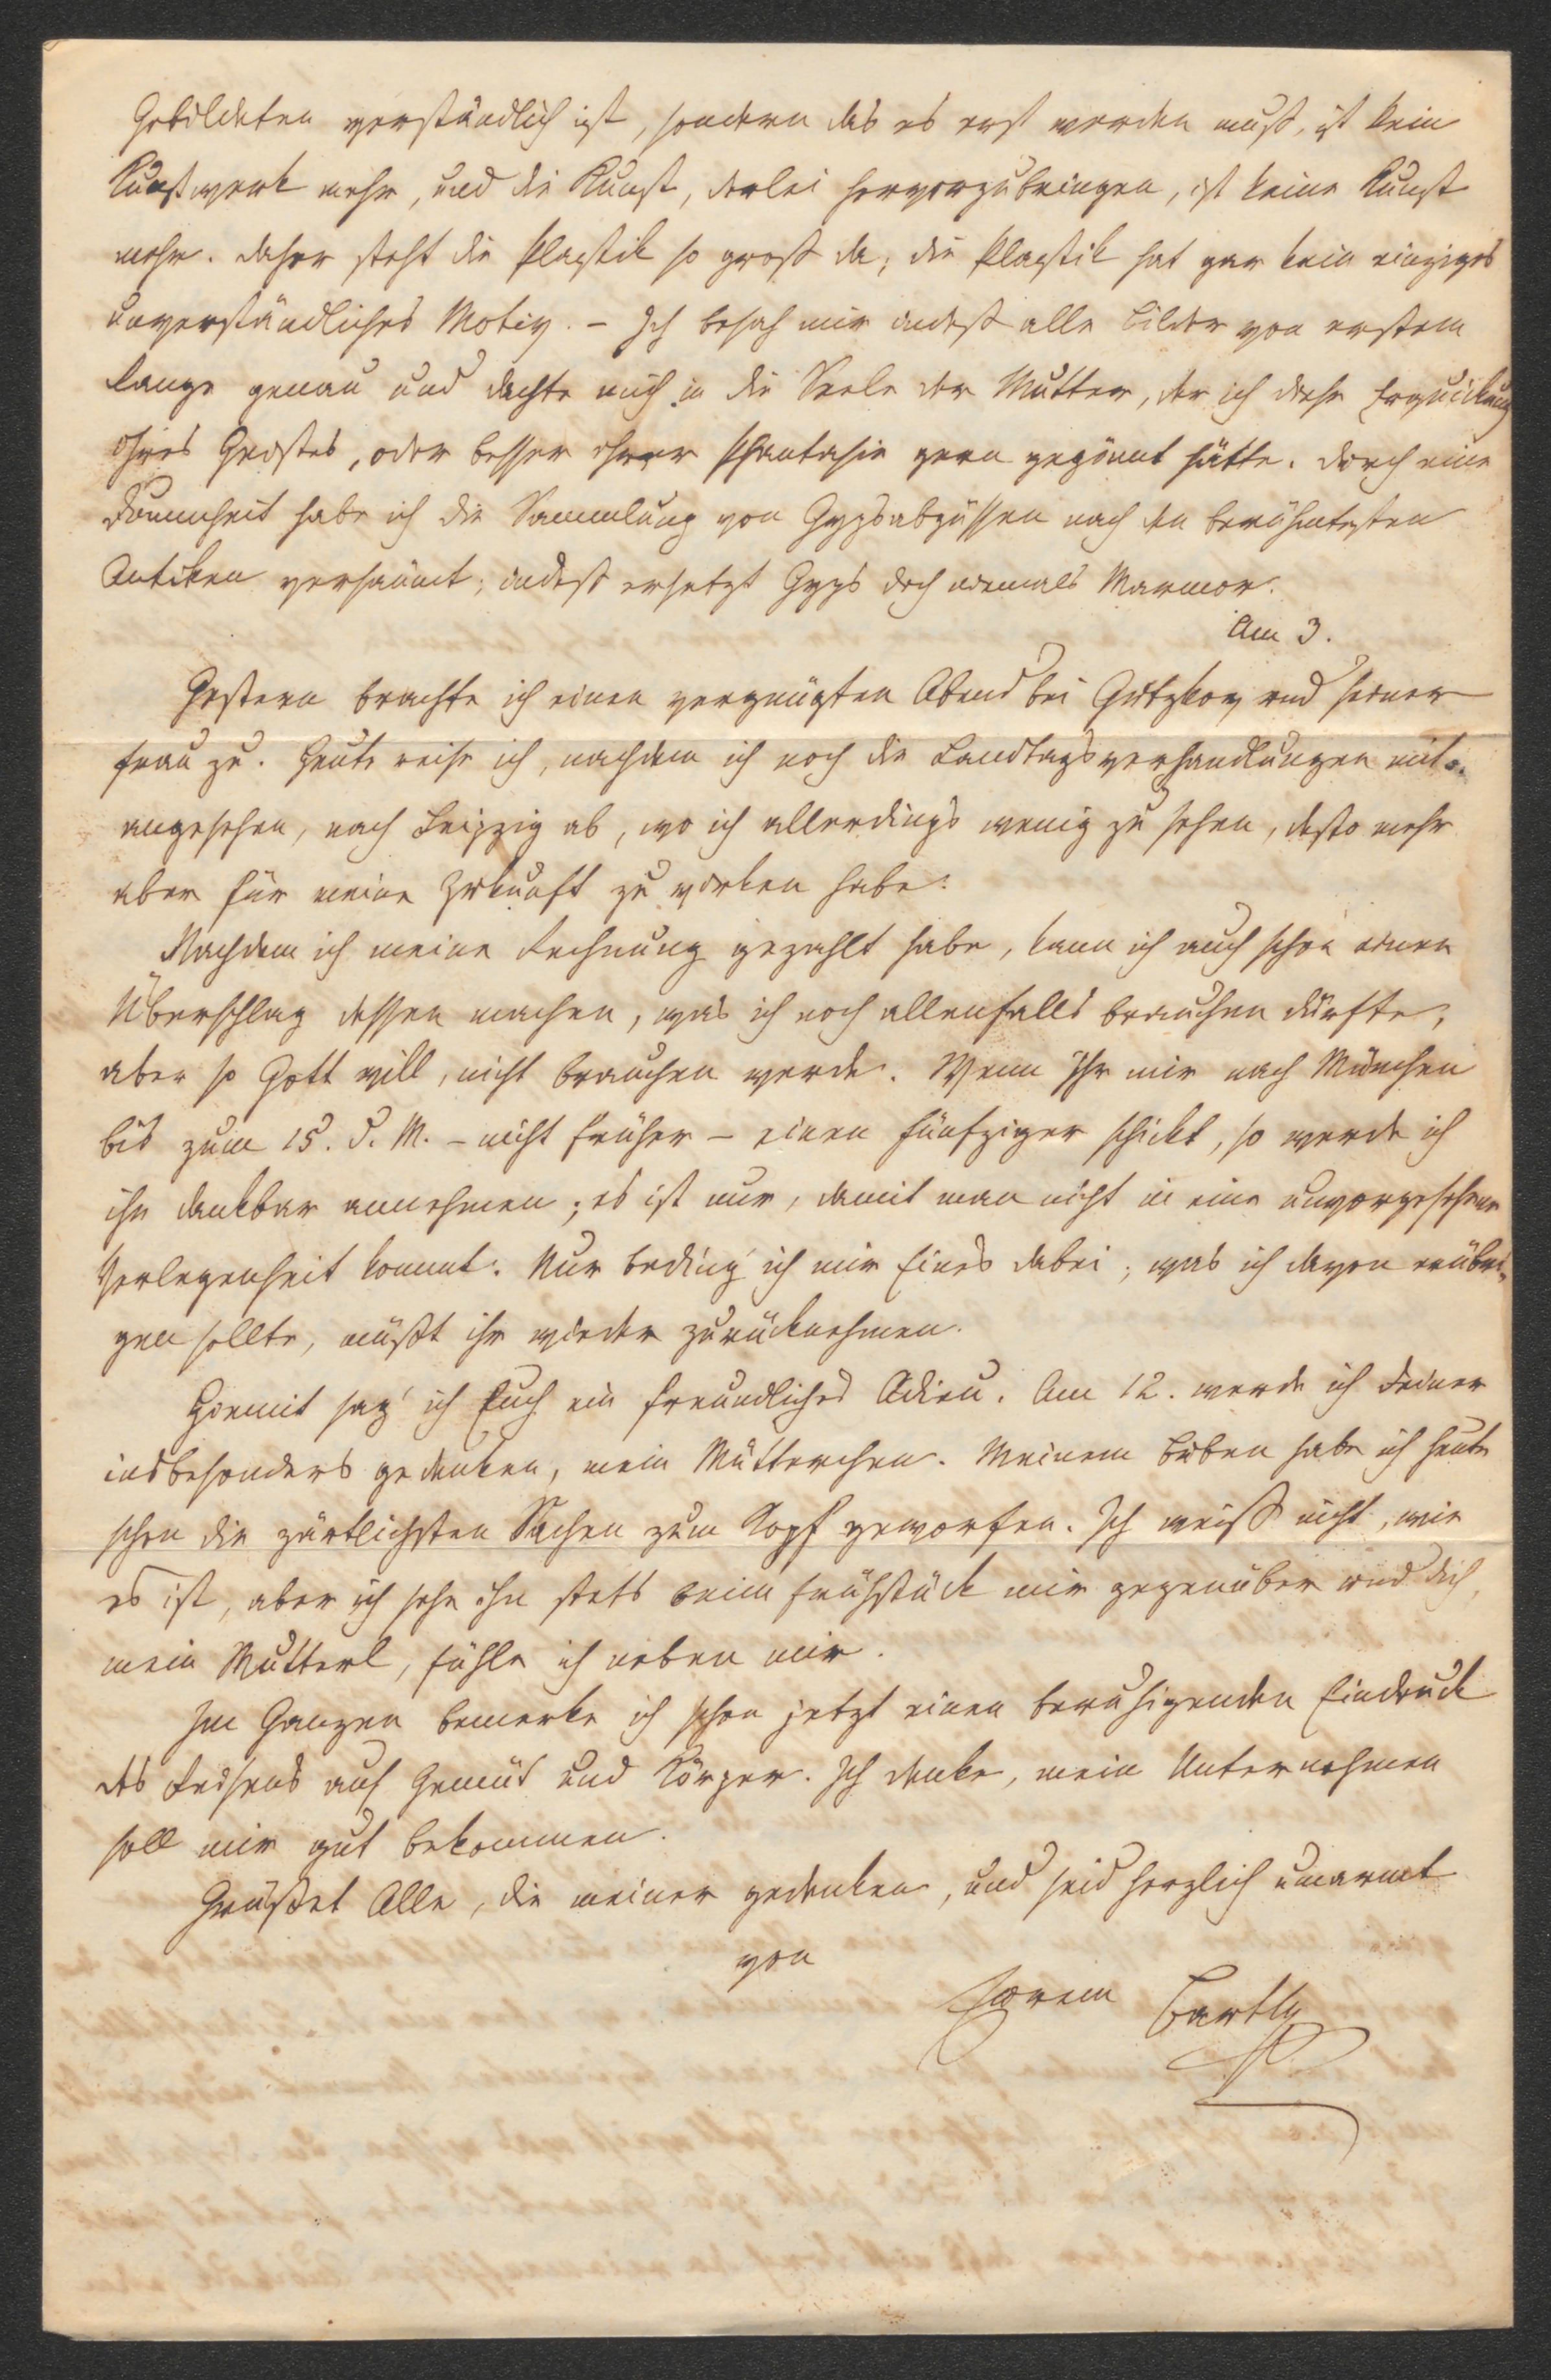 Gebildeten verständlich ist, sondern das es erst werden muß, ist kein
Kunstwerk mehr, und die Kunst, derlei hervorzubringen, ist keine Kunst
mehr. Daher steht die Plastik so groß da; die Plastik hat gar kein einziges
unverständliches Motiv. – Ich besah mir indeß alle Bilder von erstem
Range genau und dachte mich in die Seele der Mutter, der ich diese Erquickung
ihres Geistes, oder besser ihrer Phantasie gern gegönnt hätte. Durch eine
Dummheit habe ich die Sammlung von Gypsabgüssen nach den berühmtesten
Antiken versäumt; indeß ersetzt Gyps doch niemals Marmor.
Am 3.
Gestern brachte ich einen vergnügten Abend bei Gutzkow und seiner
Frau zu. Heute reise ich, nachdem ich noch die Landtagsverhandlungen mit
angesehen, nach Leipzig ab, wo ich allerdings wenig zu sehen, desto mehr
aber für meine Zukunft zu wirken habe.
Nachdem ich meine Rechnung gezahlt habe, kann ich auch schon einen
Überschlag dessen machen, was ich noch allenfalls brauchen dürfte,
aber so Gott will, nicht brauchen werde. Wenn Ihr mir nach München
bis zum 15. d. M. – nicht früher – einen Fünfziger schickt, so werde ich
ihn dankbar annehmen; es ist nur, damit man nicht in eine unvorgesehene
Verlegenheit kommt. Nur beding' ich mir Eines dabei; was ich davon erübri-
gen sollte, müßt ihr wieder zurücknehmen.
Hiemit sag' ich Euch ein freundliches Adieu. Am 12. werde ich Deiner
insbesonders gedenken, mein Mütterchen. Meinem Buben habe ich heute
schon die zärtlichsten Sachen zum Kopf geworfen. Ich weiß nicht, wie
es ist, aber ich sehe ihn stets beim Frühstück mir gegenüber und dich,
mein Mutterl, fühle ich neben mir.
Im Ganzen bemerke ich schon jetzt einen beruhigenden Eindruck
des Reisens auf Gemüt und Körper. Ich denke, mein Unternehmen
soll mir gut bekommen.
Grüßet Alle, die meiner gedenken, und seid herzlich umarmt
von
Eurem Bartly